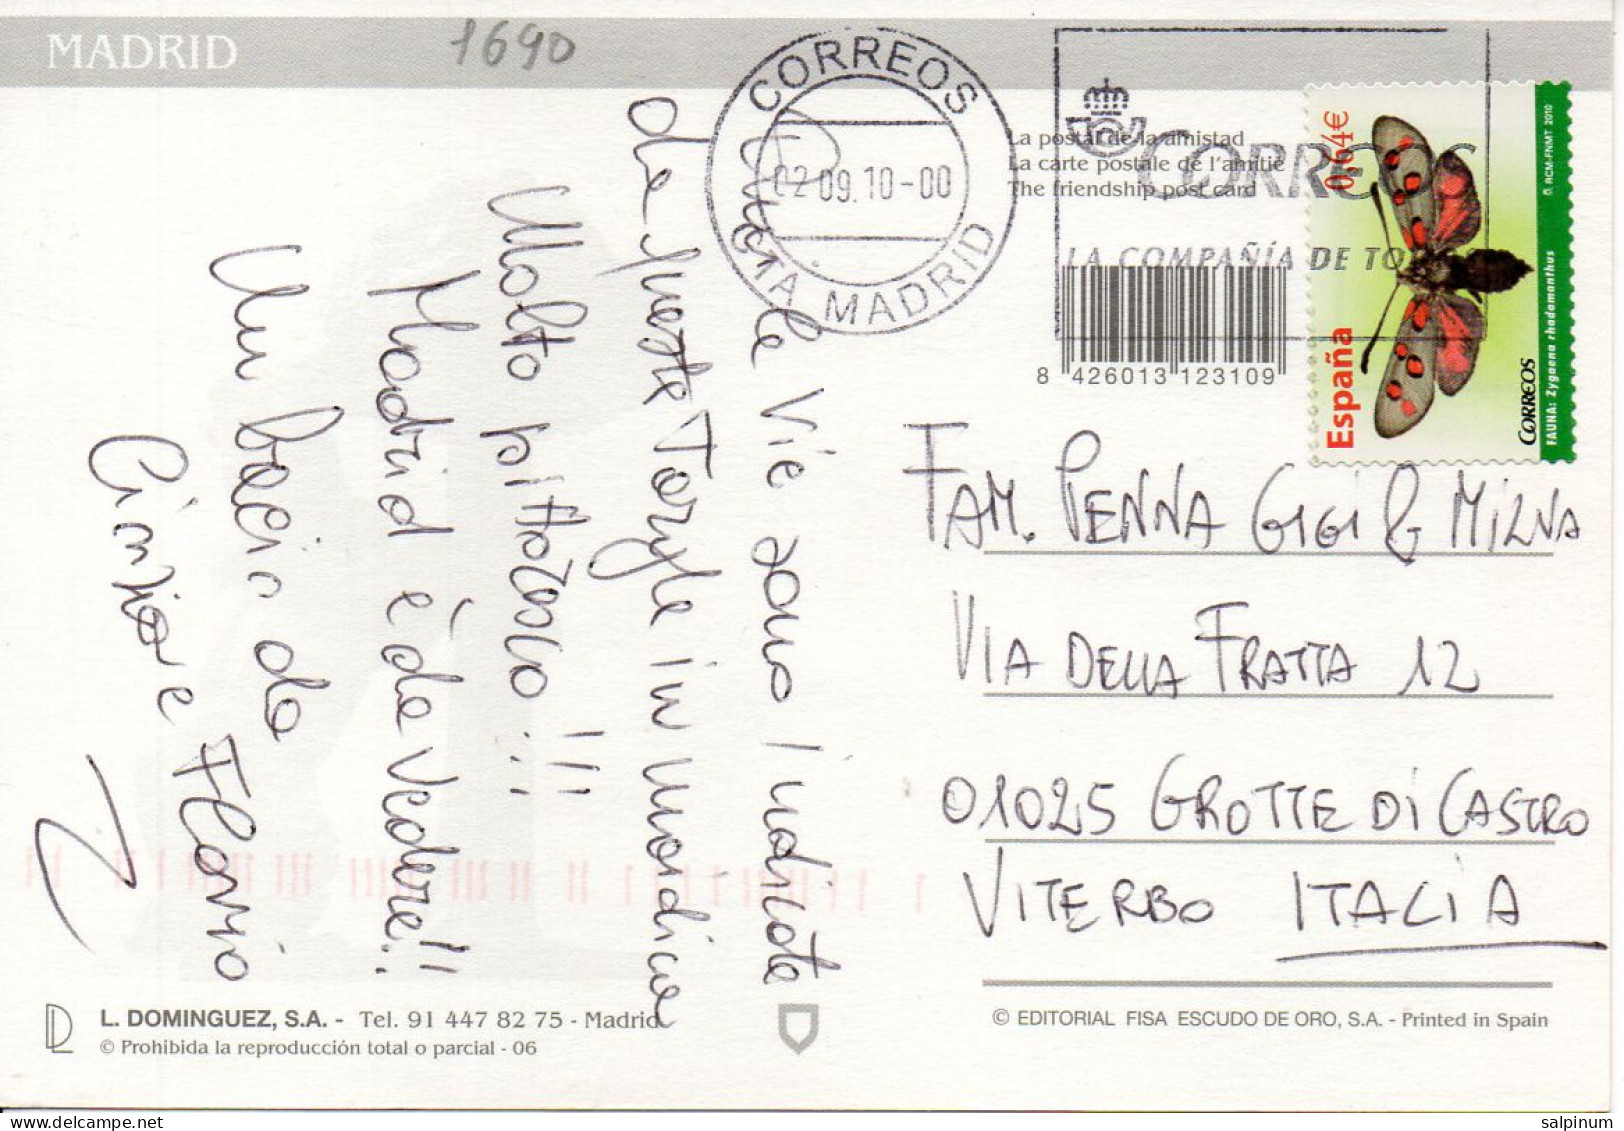 MADRID
1690
CORREOS
02 09.10-00
MADRID
La postal de la amistad
La carte postale de l'amitié
The friendship post card
CORREOS
LA COMPAÑÍA DE TO
8 426013 123109
0,64€
España
CORREOS
FAUNA: Zygaena rhadamanthus
© RCM-FNMT 2010
vie sono inondate
da queste in
Molto pittoresco!!!
Madrid è da vedere!!
Un bacio da
Cinzia e Flavio
FAM. PENNA GIGI & MILVA
VIA DELLA FRATTA 12
01025 GROTTE DI CASTRO
VITERBO ITALIA
L. DOMINGUEZ, S.A. - Tel. 91 447 82 75 - Madrid
© Prohibida la reproducción total o parcial - 06
© EDITORIAL FISA ESCUDO DE ORO, S.A. - Printed in Spain
salpinum